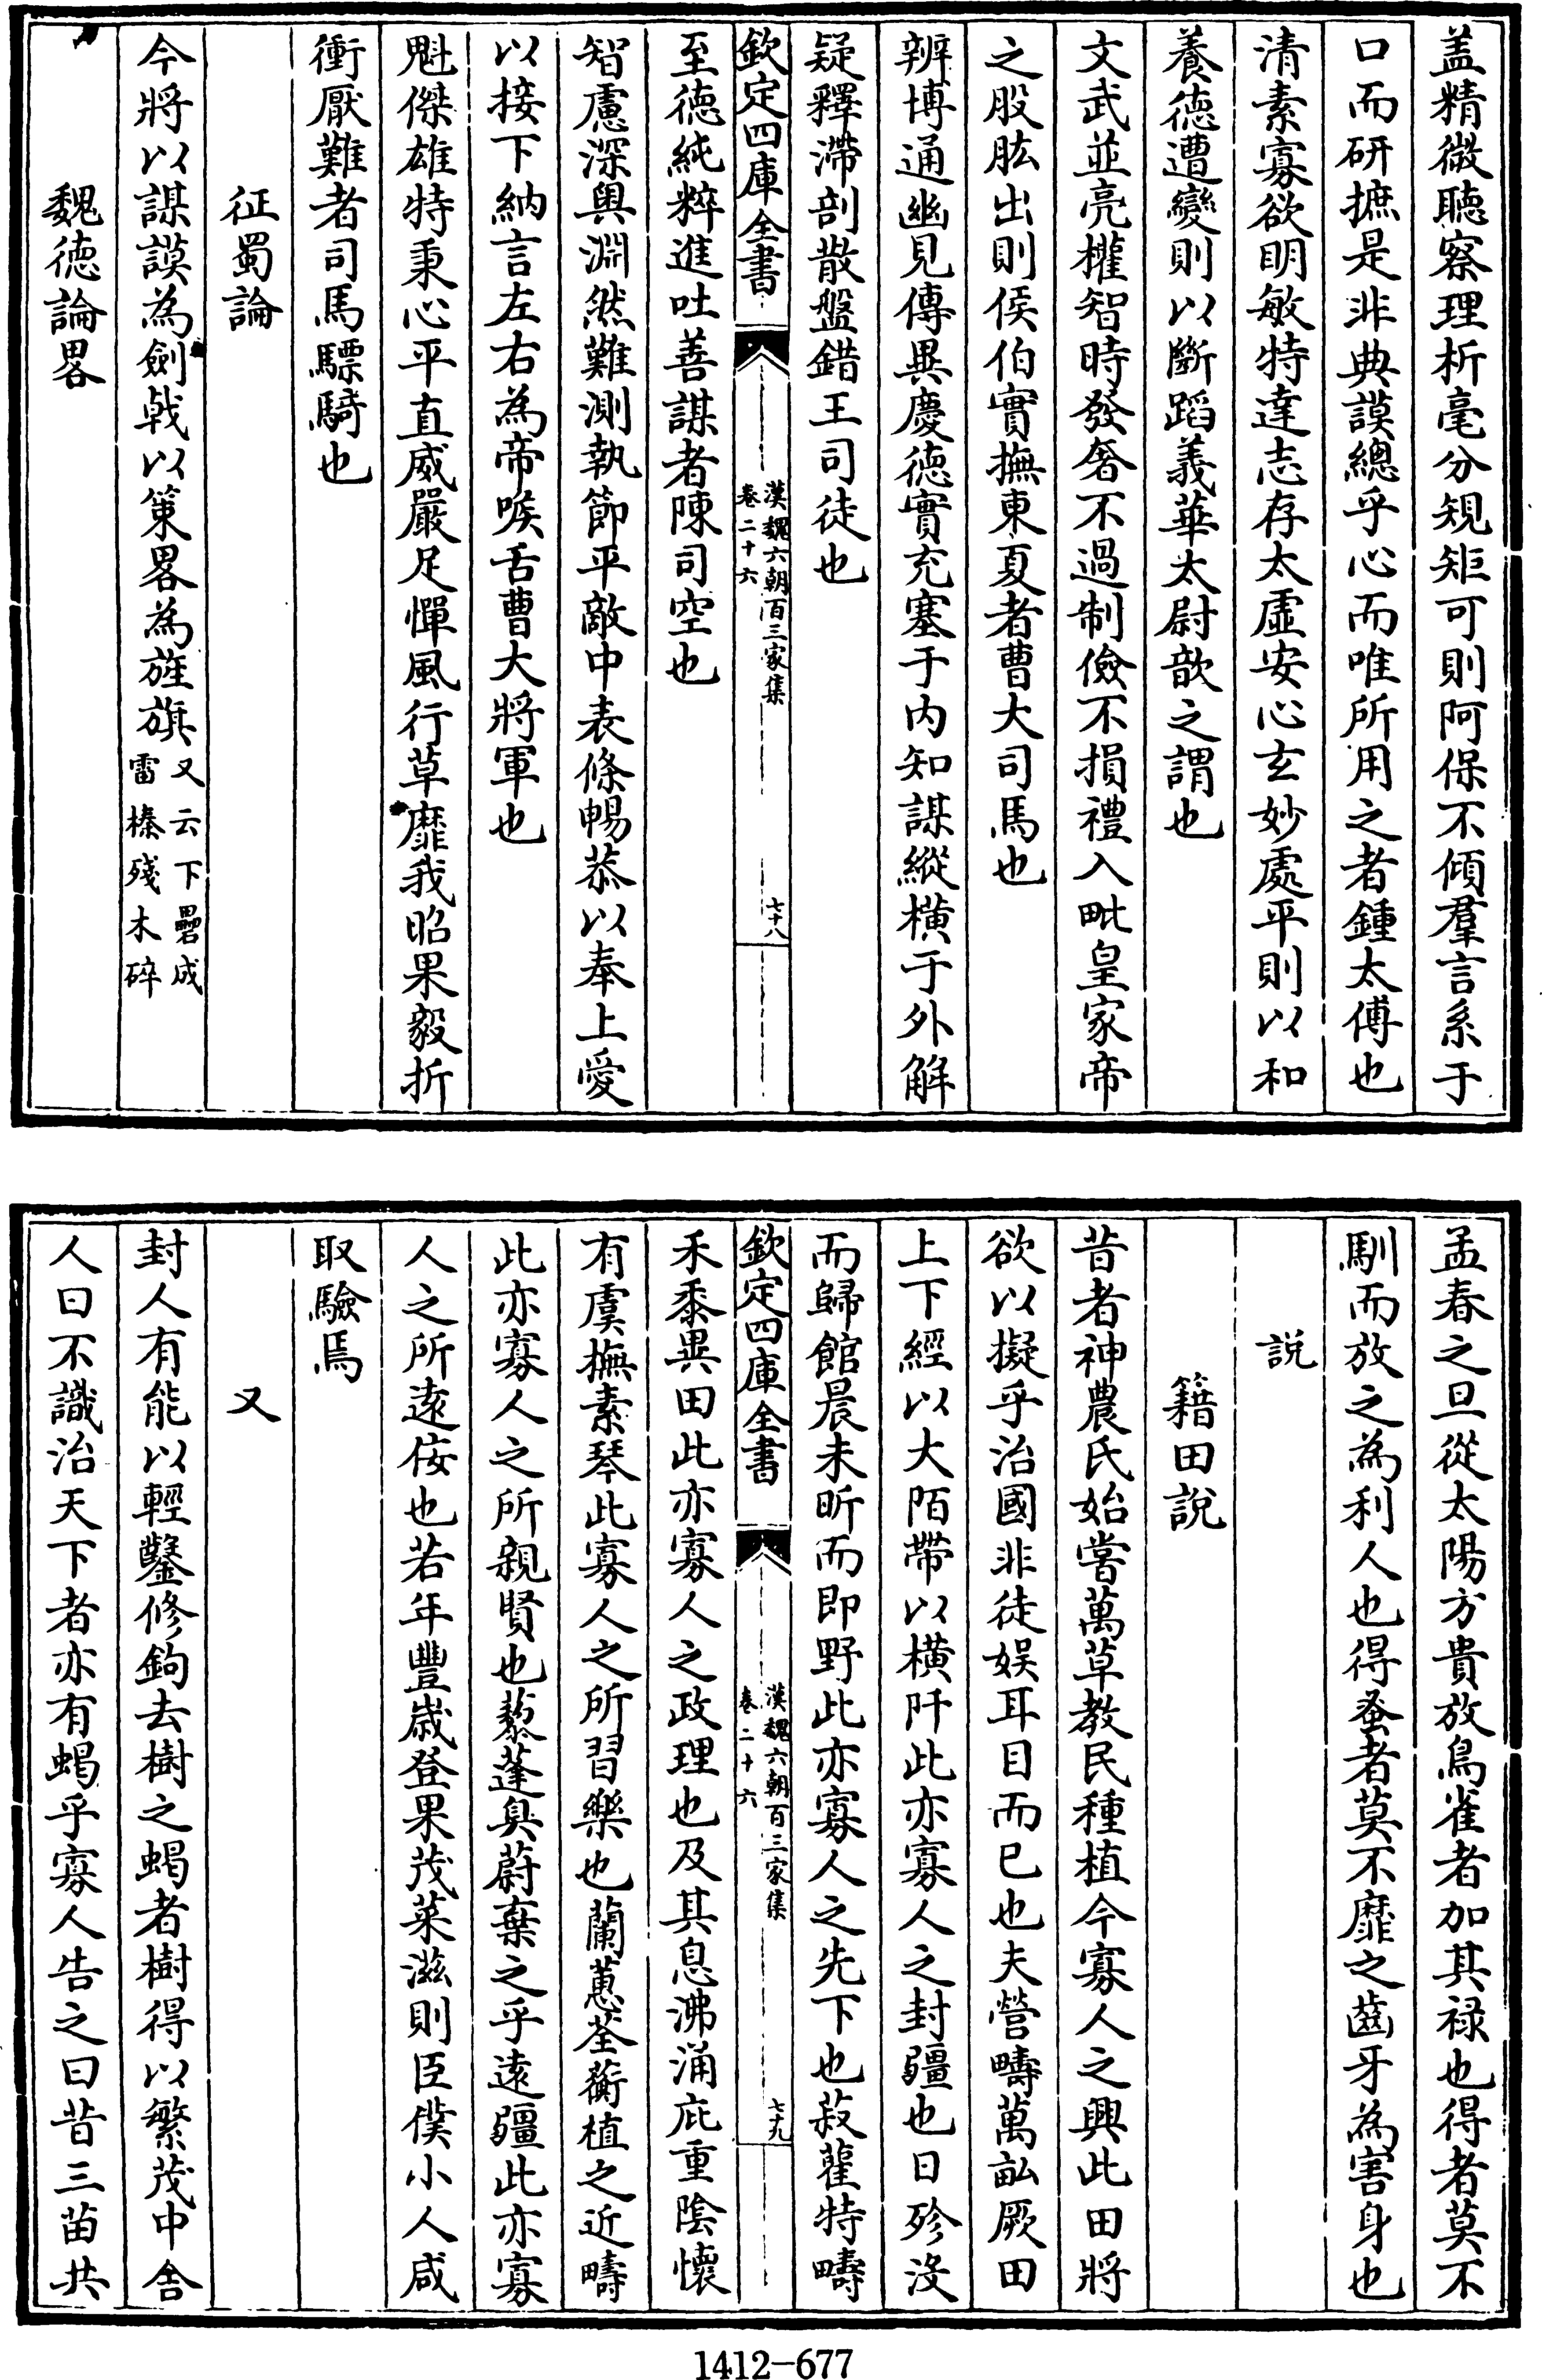 盖精微聴察理析毫分規矩可則阿保不傾羣言系于
口而研摭是非典謨總乎心而唯所用之者鍾太傅也
清素寡欲明敏特達志存太虚安心玄妙處平則以和
養徳遭變則以斷蹈義華太尉歆之謂也
文武並亮權智時發奢不過制儉不損禮入毗皇家帝
之股肱出則侯伯實撫東夏者曹大司馬也
辨博通幽見傳異慶徳實充塞于内知謀縱横于外解
疑釋滯剖散盤錯王司徒也
欽定四庫全書
漢魏六朝百三家集
卷二十六
七十八
至徳純粹進吐善謀者陳司空也
智慮深奥淵然難測執節平敵中表條暢恭以奉上愛
以接下納言左右為帝喉舌曹大將軍也
魁傑雄特秉心平直威嚴足憚風行草靡我昭果毅折
衝厭難者司馬驃騎也
征蜀論
今將以謀謨為劍㦸以策畧為旌旗又云下礨成
雷榛殘木碎
魏徳論畧
孟春之旦從太陽方貴放鳥雀者加其禄也得者莫不
馴而放之為利人也得蚤者莫不靡之齒牙為害身也
説
籍田説
昔者神農氏始嘗萬草教民種植今寡人之興此田將
欲以擬乎治國非徒娱耳目而已也夫營疇萬畝厥田
上下經以大陌帶以横阡此亦寡人之封疆也日殄没
而歸館晨未昕而即野此亦寡人之先下也菽藿特疇
欽定四庫全書
漢魏六朝百三家集
卷二十六
七十九
禾黍異田此亦寡人之政理也及其息沸涌庇重陰懷
有虞撫素琴此寡人之所習樂也蘭蕙荃蘅植之近疇
此亦寡人之所親賢也藜蓬臭蔚棄之乎逺疆此亦寡
人之所逺佞也若年豐嵗登果茂菜滋則臣僕小人咸
取驗焉
又
封人有能以輕鑿修鉤去樹之蝎者樹得以繁茂中舎
人曰不識治天下者亦有蝎乎寡人告之曰昔三苗共
1412-677